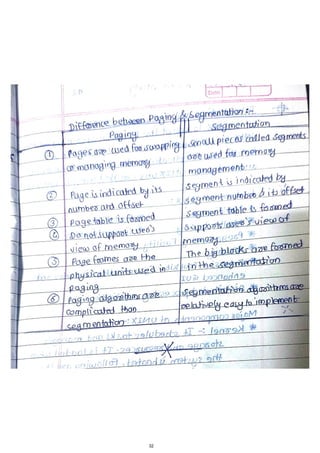 Date
Difference between Paging & Segmentation :-
Paging
Segmentation
① Pages are used for swapping or managing memory
small pieces called segments are used for memory management
② Page is indicated by its number and offset
segment is indicated by segment number & its offset
③ Page table is formed
segment table is formed
④ Do not support user's view of memory
Supports user's view of memory
⑤ Page frames are the physical units used in paging
The big blocks are formed in the segmentation
⑥ Paging algorithms are complicated than segmentation
segmentation algorithms are relatively easy to implement
X
52